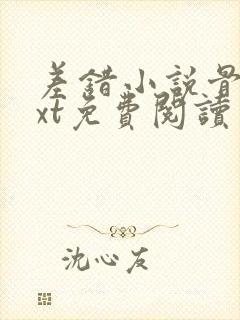 差錯小說最
xt免費閱讀
沈心友